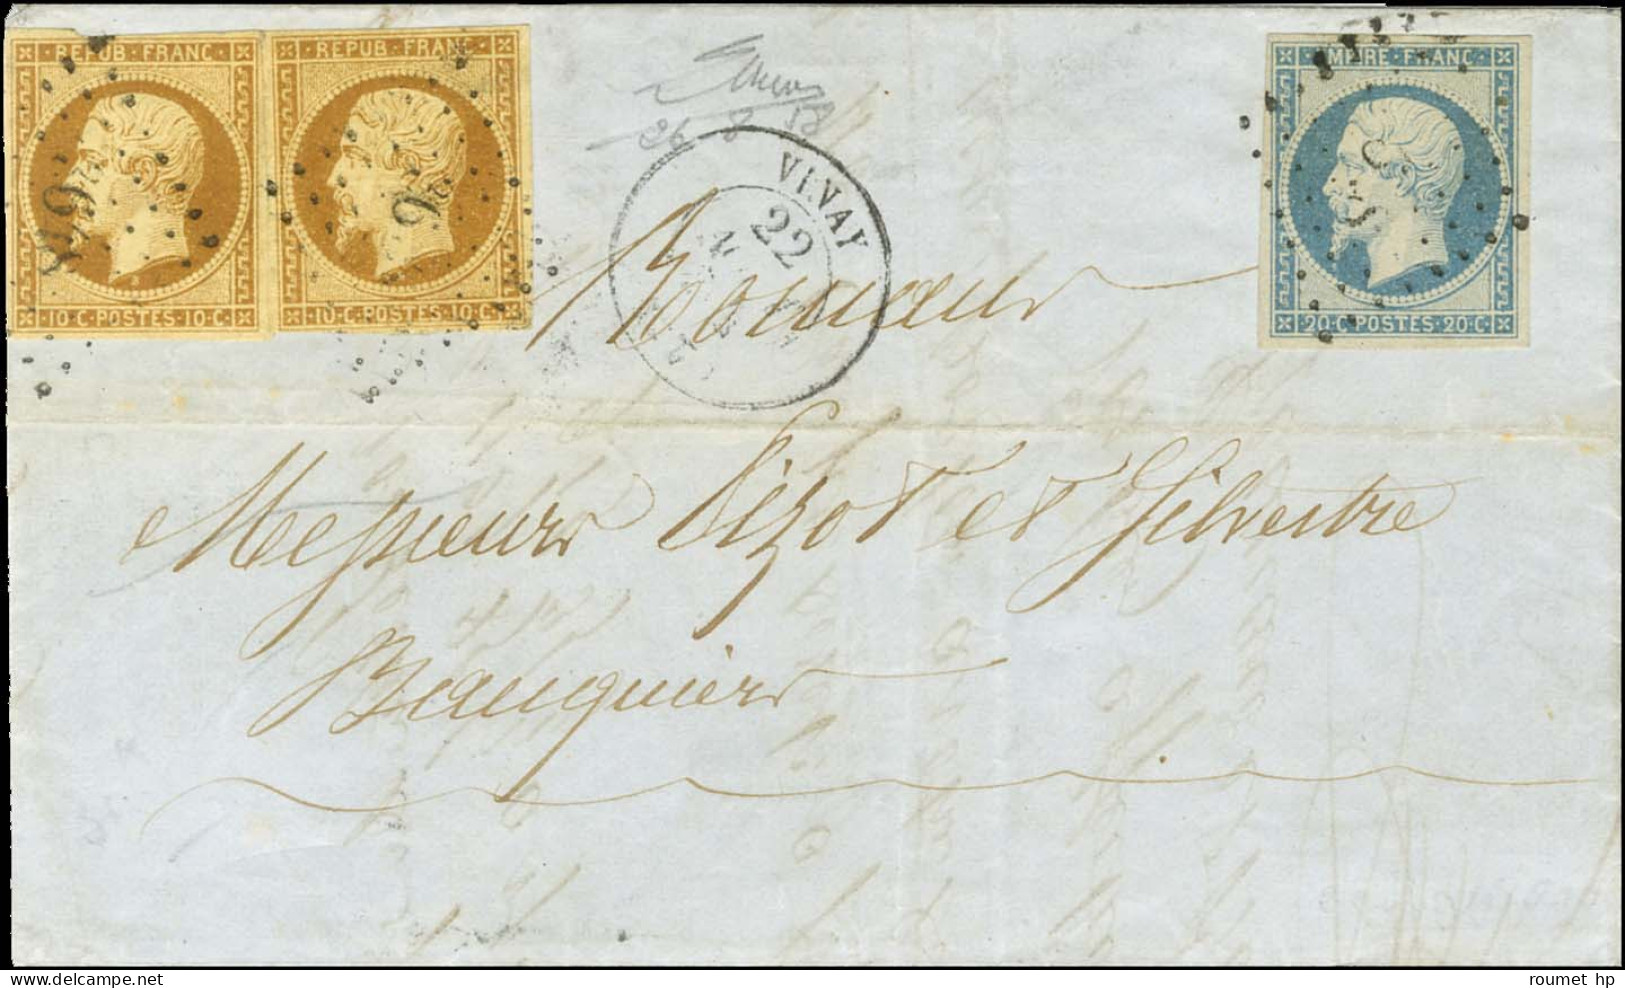 REPUB·FRANC·
REPUB·FRANC·
MPIRE·FRANC·
10·C·POSTES·10·C·
10·C·POSTES·10·C·
20·C·POSTES·20·C·
VINAY
22
Messieurs Lizot et Silvestre
Banquiers
roumet hp